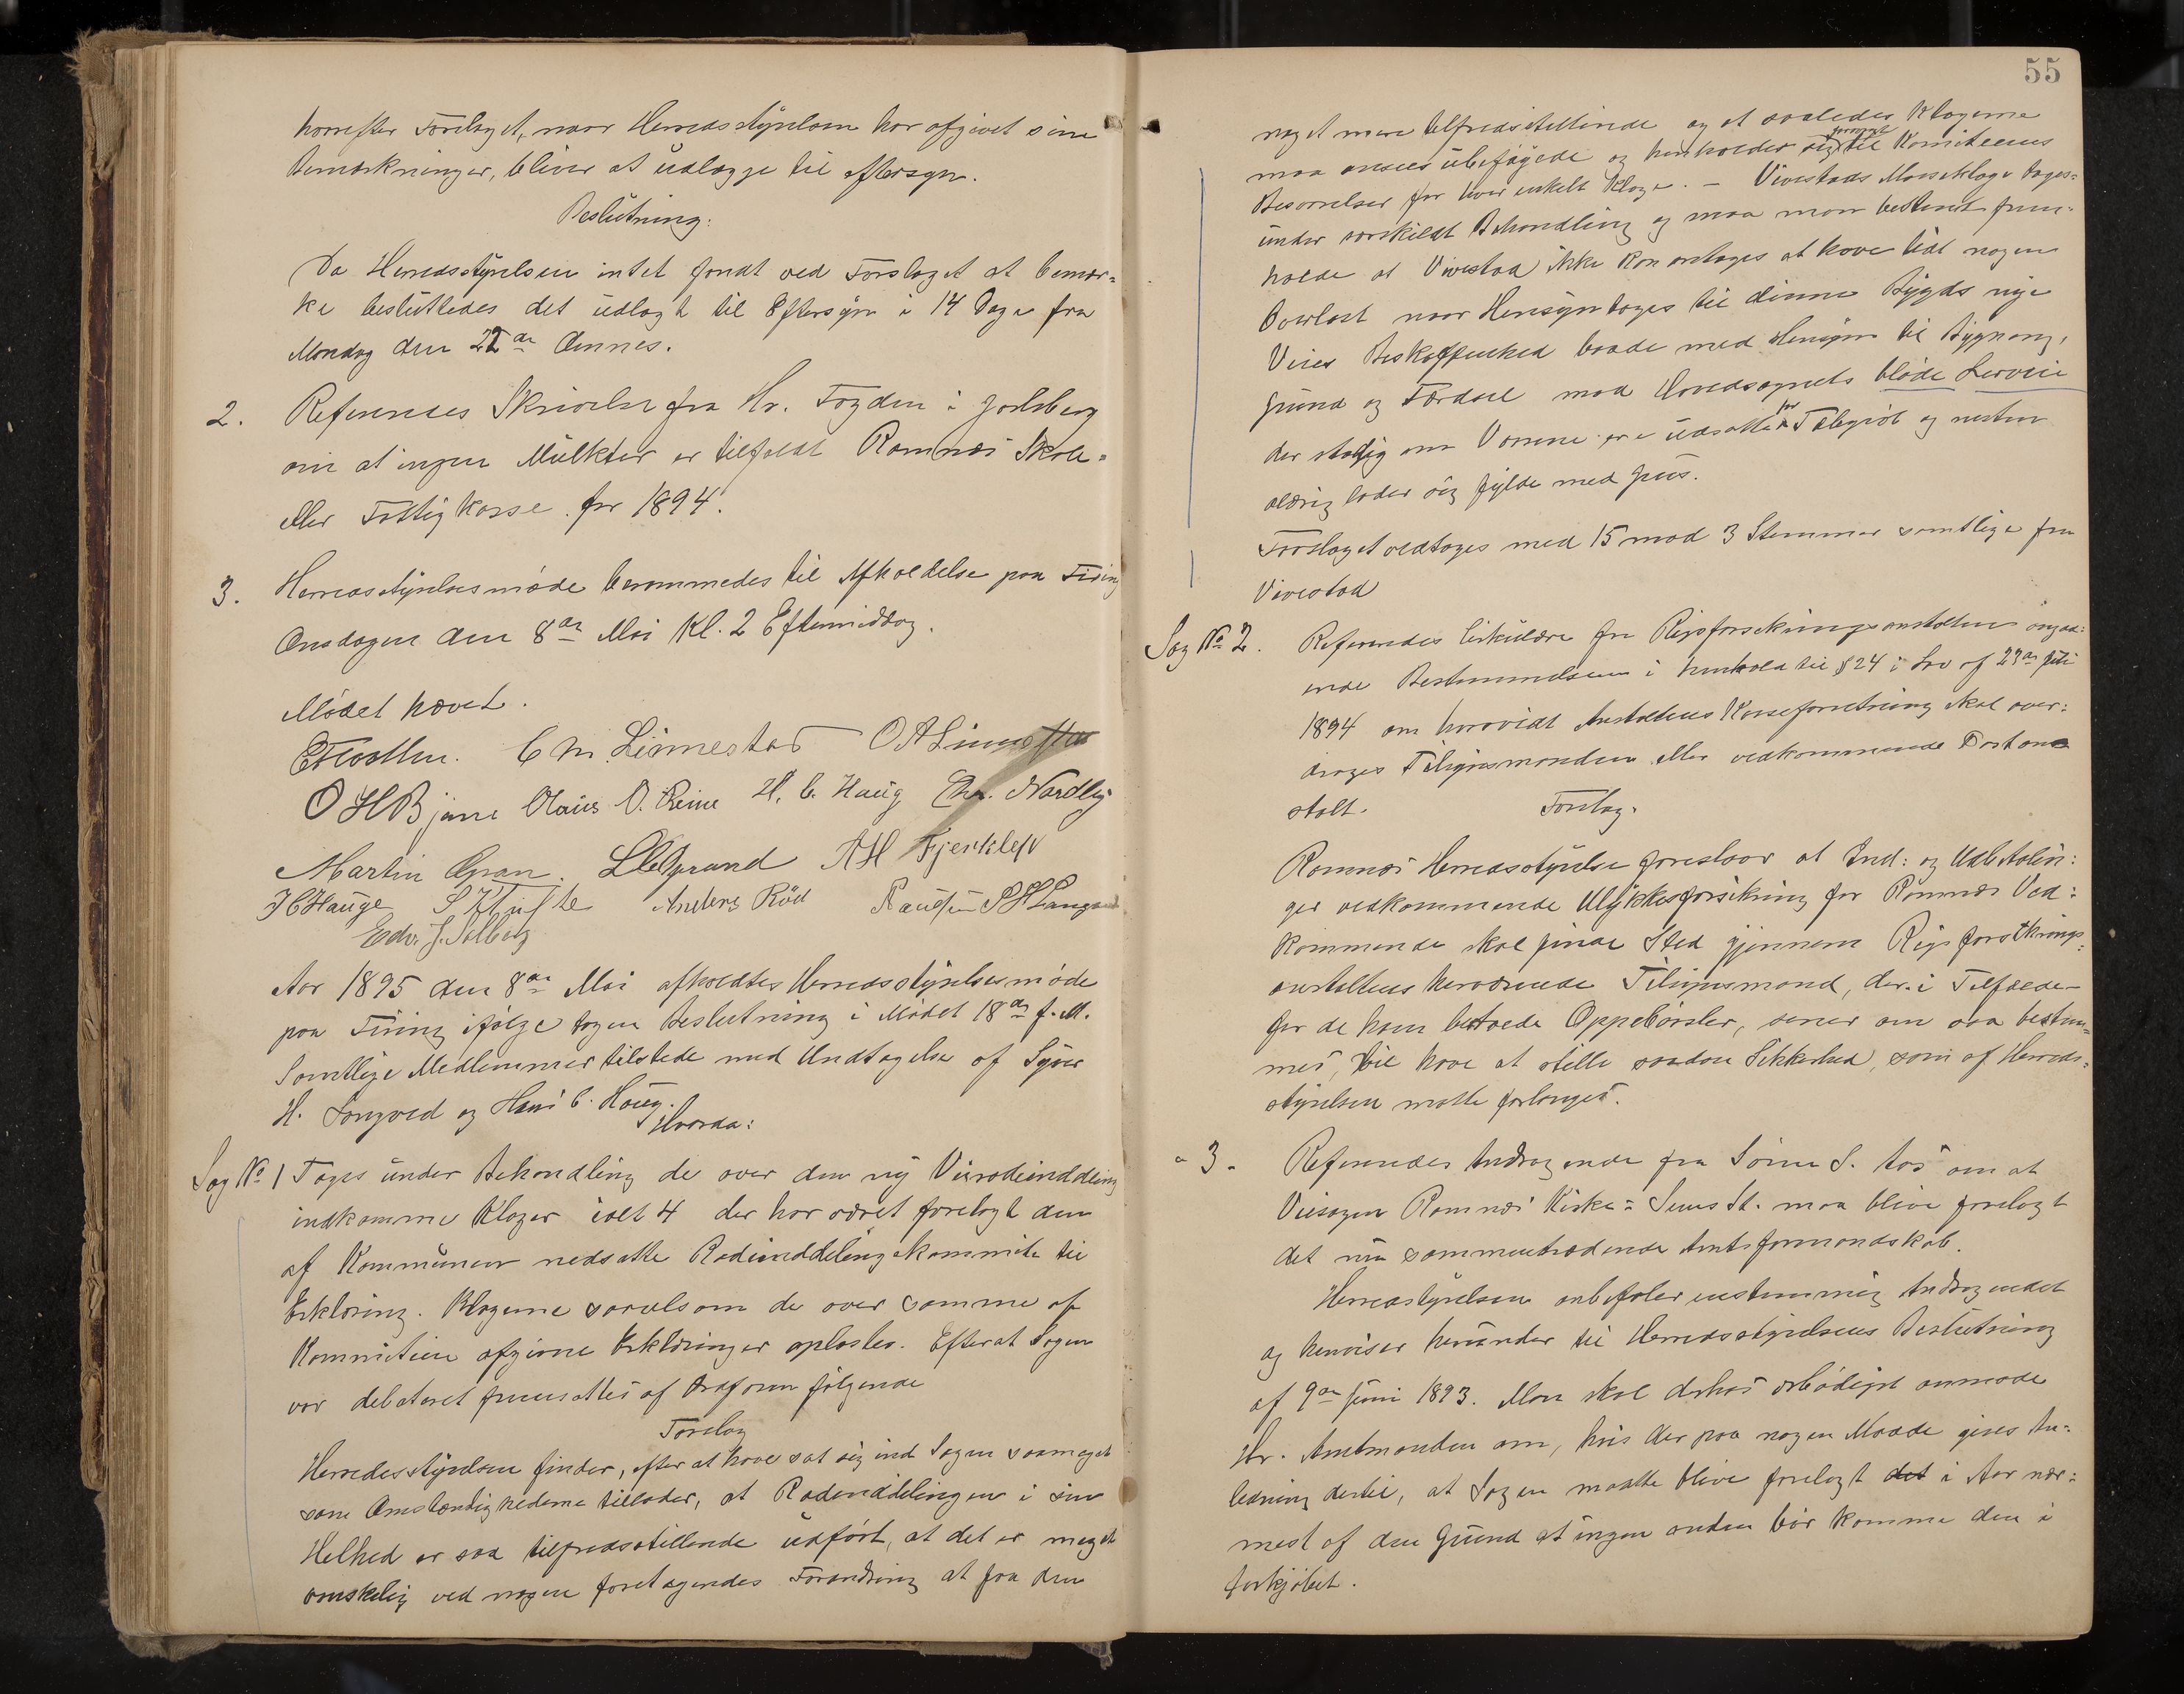 hvorefter Forslaget, naar Herredsstyrelsen har afgivet sine
Bemærkninger, bliver at udlægge til eftersyn.
Beslutning:
Da Herredsstyrelsen intet fandt ved Forslaget at bemær-
ke besluttedes det udlagt til Eftersyn i 14 Dage fra
Mandag den 22de dennes.
2. Refereredes Skrivelse fra Hr. Fogden i Jarlsberg
om at ingen Mulkter er tilfaldt Ramnæs Skole-
eller Fattigkasse for 1894.
3. Herredsstyrelsesmøde berammedes til Afholdelse paa Firing
Onsdagen den 8de Mai Kl. 2 Eftermiddag.
Mødet hævet.
C M. Linnestad
O H Bjune Olaus O. Reine H. C. Haug Chr. Nordby
Martin Gran. A H Fjerkleiv
H C Hauge Anders Röd
Edv. J. Solberg
Aar 1895 den 8de Mai afholdtes Herredsstyrelsesmøde
paa Firing ifølge tagen Beslutning i Mødet 18de f. M.
Samtlige Medlemmer tilstede med Undtagelse af Syver
H. Langved og Hans C. Haug.
Hvorda:
Sag No 1 Toges under Behandling de over den ny Veirodeinddeling
indkomne Klager ialt 4 der har været forelagt den
af Kommunen nedsatte Rodeinddelingskommite til
Erklæring. Klagerne saavelsom de over samme af
Kommiteen afgivne Erklæringer oplæstes. Efterat Sagen
var debateret fremsattes af Ordføren følgende
Forslag
Herredsstyrelsen finder, efter at have sat sig ind Sagen saameget
som Omstændighederne tillader, at Rodeinddelingen i sin
Helhed er saa tilfredsstillende udført, at det er meget
vanskelig ved nogen foretagendes Forandring at faa den
55
noget mere tilfredsstillende og at saaledes Klagerne
maa ansees ubeføiede og henholder sig forøvrigt til Komiteens
Besvarelser for hver enkelt Klage. - Vivestads Masseklage toges
under særskildt Behandling og maa man bestemt frem-
holde at Vivestad ikke kan antages at have lidt nogen
Overlast naar Hensyn tages til denne Bygds nye
Veies Beskaffenhed baade med Hensyn til Bygning,
Grund og Færdsel mod Hovedsognets bløde Lerveie
der stadig om Vaarene ere udsatte for Telegrøt og nesten
aldrig lader sig fylde med Grus.
Forslaget vedtoges med 15 mod 3 Stemmer samtlige fra
Vivestad
Sag No 2. Refereredes Cirkulære fra Rigsforsikringsanstalten angaa-
ende Bestemmelsen i henhold til § 24 i Lov af 23de Juli
1894 om hvorvidt Anstaltens Kasseforretning skal over-
drages Tilsynsmanden eller vedkommende Postan-
stalt. Forslag.
Ramnæs Herredsstyrelse foreslaar at Ind- og Udbetalin-
ger vedkommende Ulykkesforsikring for Ramnæs Ved-
kommende skal finde Sted gjennem Rigsforsikrings-
anstaltens herværende Tilsynsmand, der i Tilfælde
for de ham betroede Oppebørsler, senere om saa bestem-
mes, vil have at stille saadan Sikkerhed, som af Herreds-
styrelsen maatte forlanges.
" 3. Refereredes Andragende fra Søren S. Aas om at
Veisagen Ramnæs Kirke - Sems St. maa blive forelagt
det nu sammentrædende Amtsformandskab.
Herredsstyrelsen anbefaler enstemmig Andragendet
og henviser herunder til Herredsstyrelsens Beslutning
af 9de Juni 1893. Man skal derhos ærbødigst anmode
Hr. Amtmanden om, hvis der paa nogen Maade gives An-
ledning dertil, at Sagen maatte blive forelagt det i Aar nær-
mest af den Grund at ingen anden bør komme den i
forkjøbet.